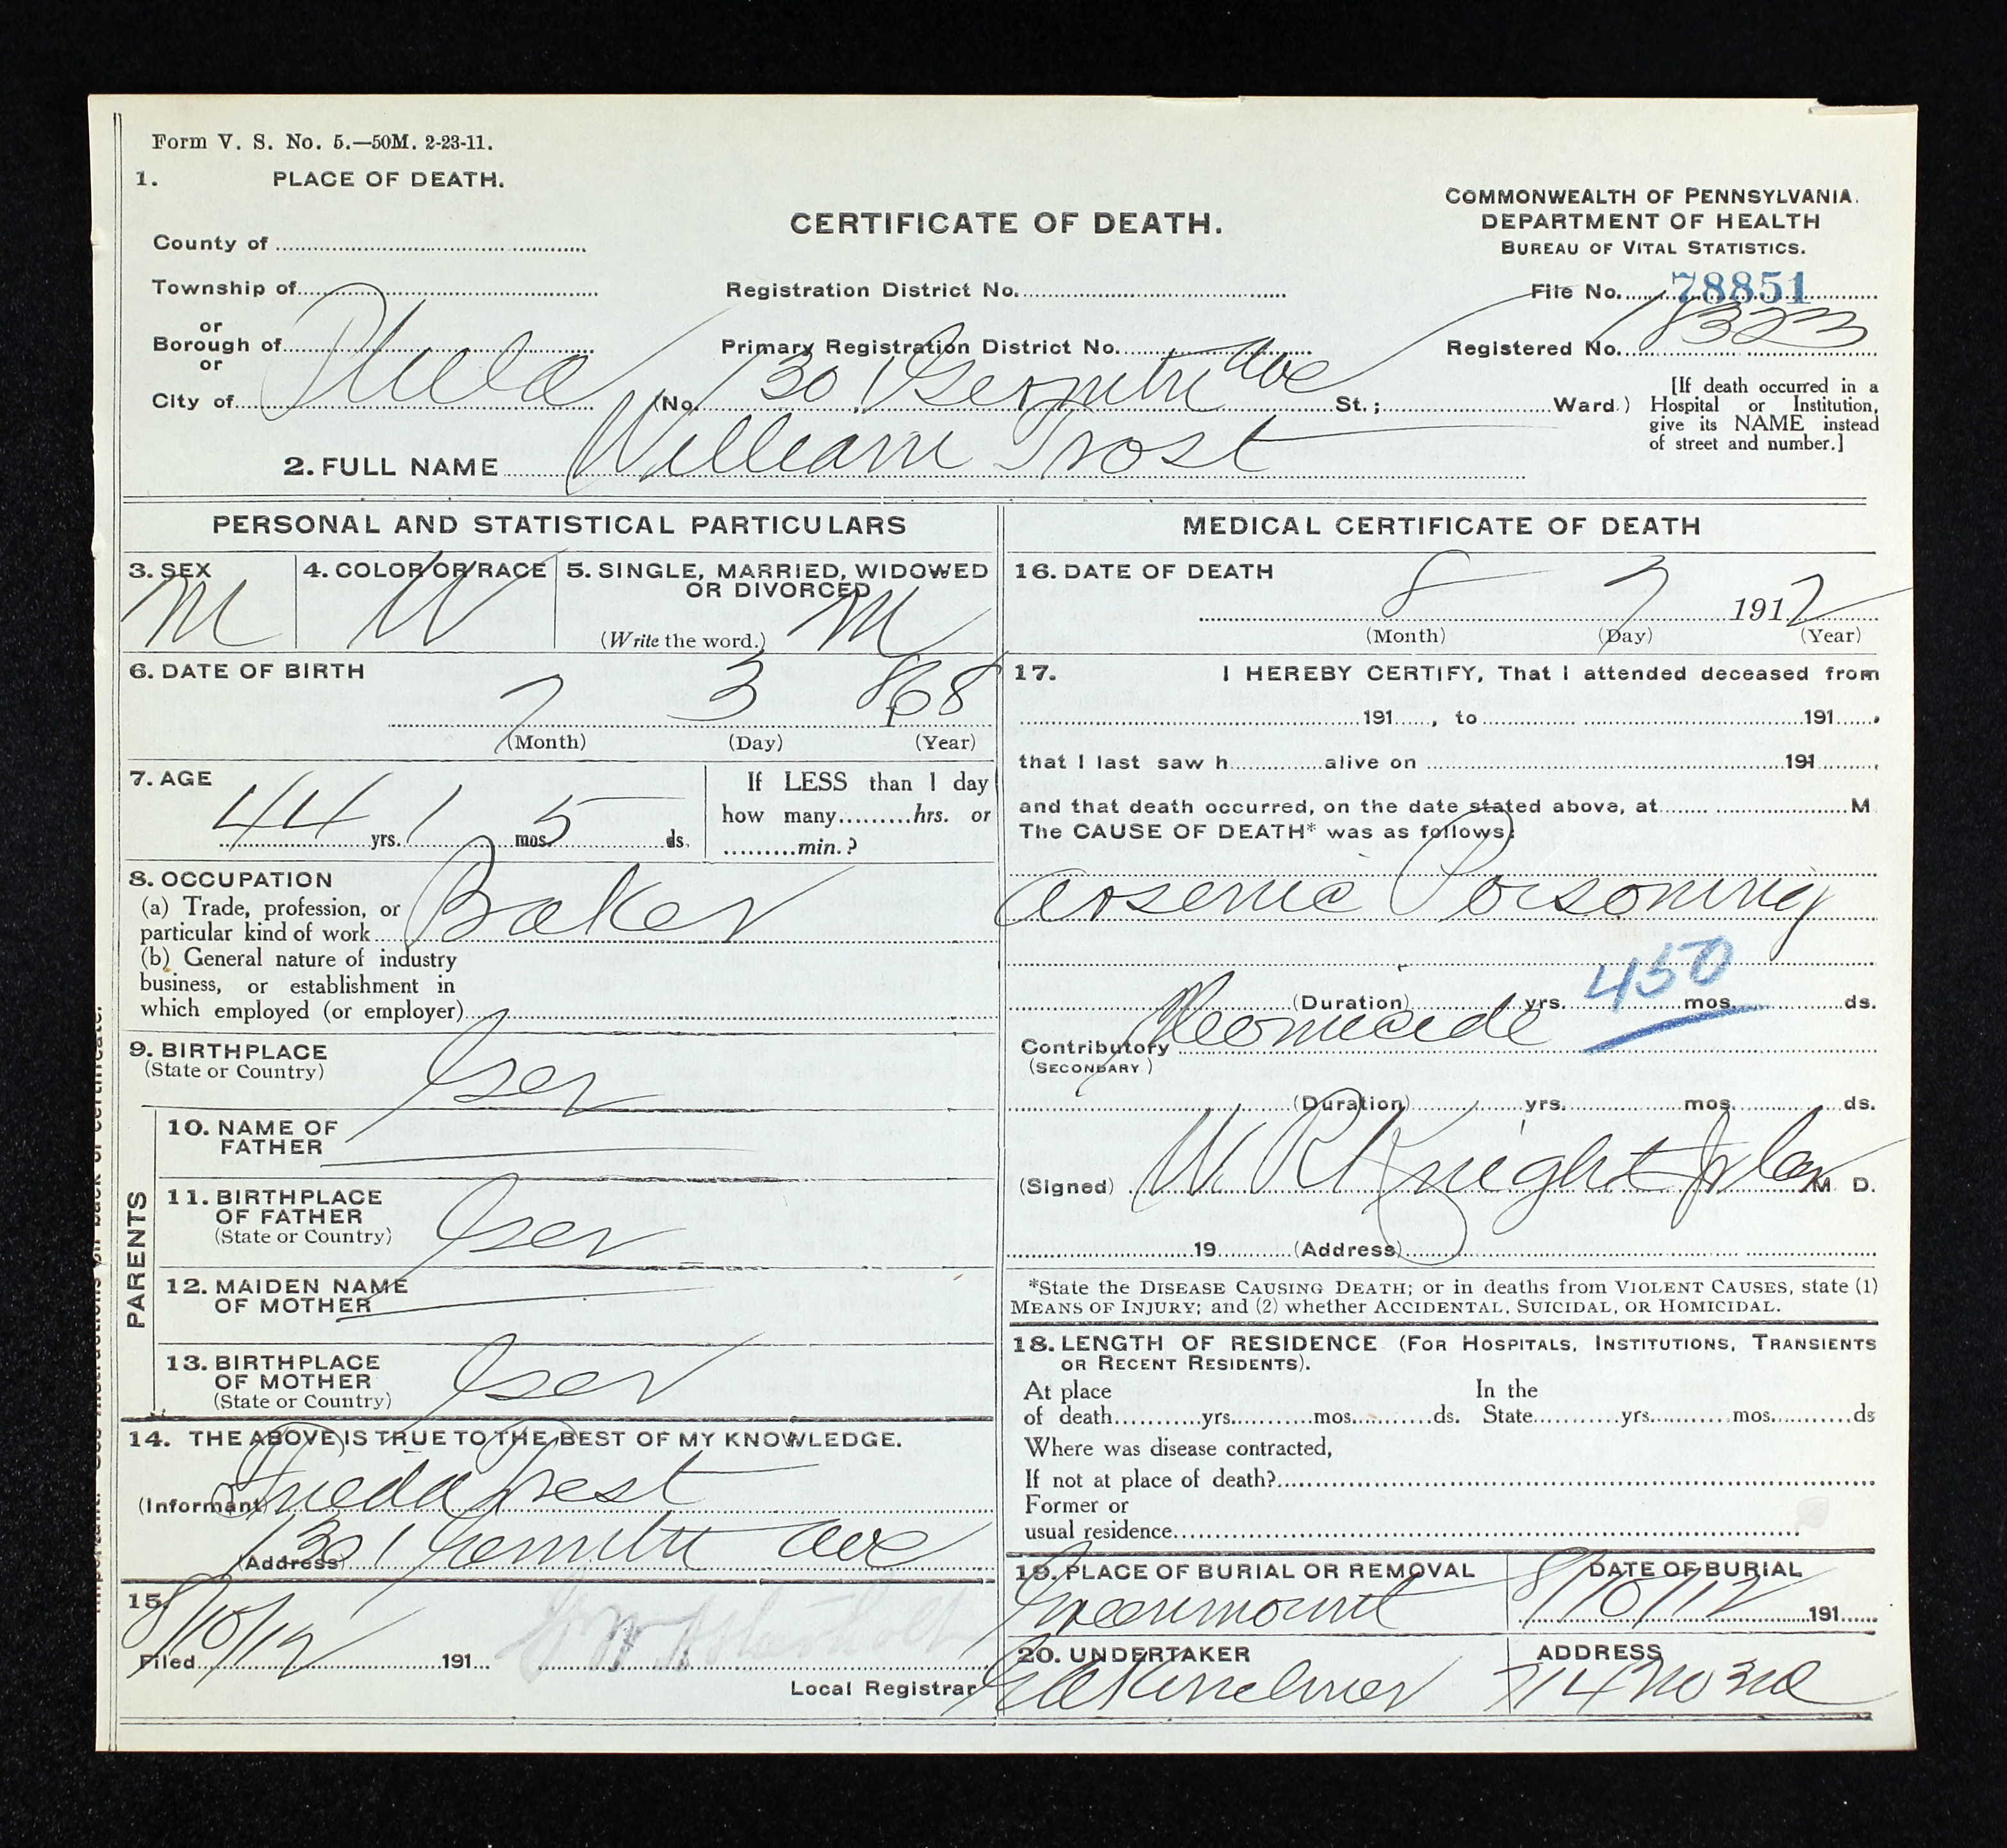 Form V. S. No. 5.—50M. 2-23-11.
1. PLACE OF DEATH.
COMMONWEALTH OF PENNSYLVANIA.
CERTIFICATE OF DEATH.
DEPARTMENT OF HEALTH
BUREAU OF VITAL STATISTICS.
County of
Township of
Registration District No.
File No. 78851
or
Borough of
Primary Registration District No.
Registered No. 18323
or
City of Phila
(No. 1301 Germtn Ave St.; Ward.)
[If death occurred in a
Hospital or Institution,
give its NAME instead
of street and number.]
2. FULL NAME William Trost
PERSONAL AND STATISTICAL PARTICULARS
3. SEX M
4. COLOR OR RACE W
5. SINGLE, MARRIED, WIDOWED
OR DIVORCED
(Write the word.) M
6. DATE OF BIRTH
7 3 868
(Month) (Day) (Year)
7. AGE
44 yrs. 1 mos. 5 ds.
If LESS than 1 day
how many hrs. or
min.?
8. OCCUPATION
(a) Trade, profession, or
particular kind of work Baker
(b) General nature of industry
business, or establishment in
which employed (or employer)
9. BIRTHPLACE
(State or Country) Ger
PARENTS
10. NAME OF
FATHER
11. BIRTHPLACE
OF FATHER
(State or Country) Ger
12. MAIDEN NAME
OF MOTHER
13. BIRTHPLACE
OF MOTHER
(State or Country) Ger
14. THE ABOVE IS TRUE TO THE BEST OF MY KNOWLEDGE.
(Informant) Frieda Trost
(Address) 1301 Germtn Ave
15.
Filed 8/10/12 191
Local Registrar
MEDICAL CERTIFICATE OF DEATH
16. DATE OF DEATH
8 7 1912
(Month) (Day) (Year)
17. I HEREBY CERTIFY, That I attended deceased from
191 , to 191 .
that I last saw h alive on 191 ,
and that death occurred, on the date stated above, at M
The CAUSE OF DEATH* was as follows:
Arsenic Poisoning
450
(Duration) yrs. mos. ds.
Contributory Homicide
(SECONDARY)
(Duration) yrs. mos. ds.
(Signed) W. R. Knight Jr Cor M. D.
19 (Address)
*State the DISEASE CAUSING DEATH; or in deaths from VIOLENT CAUSES, state (1)
MEANS OF INJURY; and (2) whether ACCIDENTAL, SUICIDAL, OR HOMICIDAL.
18. LENGTH OF RESIDENCE (FOR HOSPITALS, INSTITUTIONS, TRANSIENTS
OR RECENT RESIDENTS).
At place In the
of death yrs. mos. ds. State yrs. mos. ds
Where was disease contracted,
If not at place of death?
Former or
usual residence
19. PLACE OF BURIAL OR REMOVAL
Greenmount
DATE OF BURIAL
8/10/12 191
20. UNDERTAKER
ADDRESS
714 No 3rd